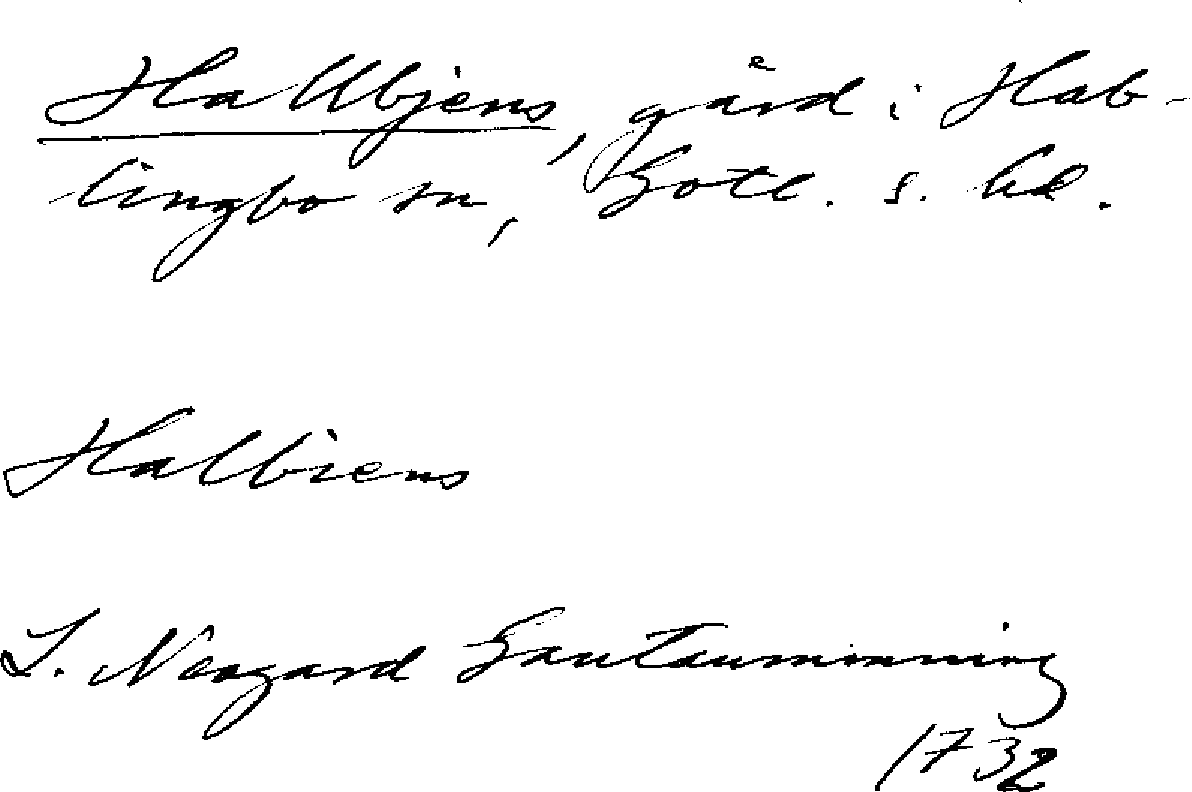 Hallbjens, gård i Hab-
lingbo sn, Gotl. s. hd.
Halbiens
J. Neogard Gautauminning
1732